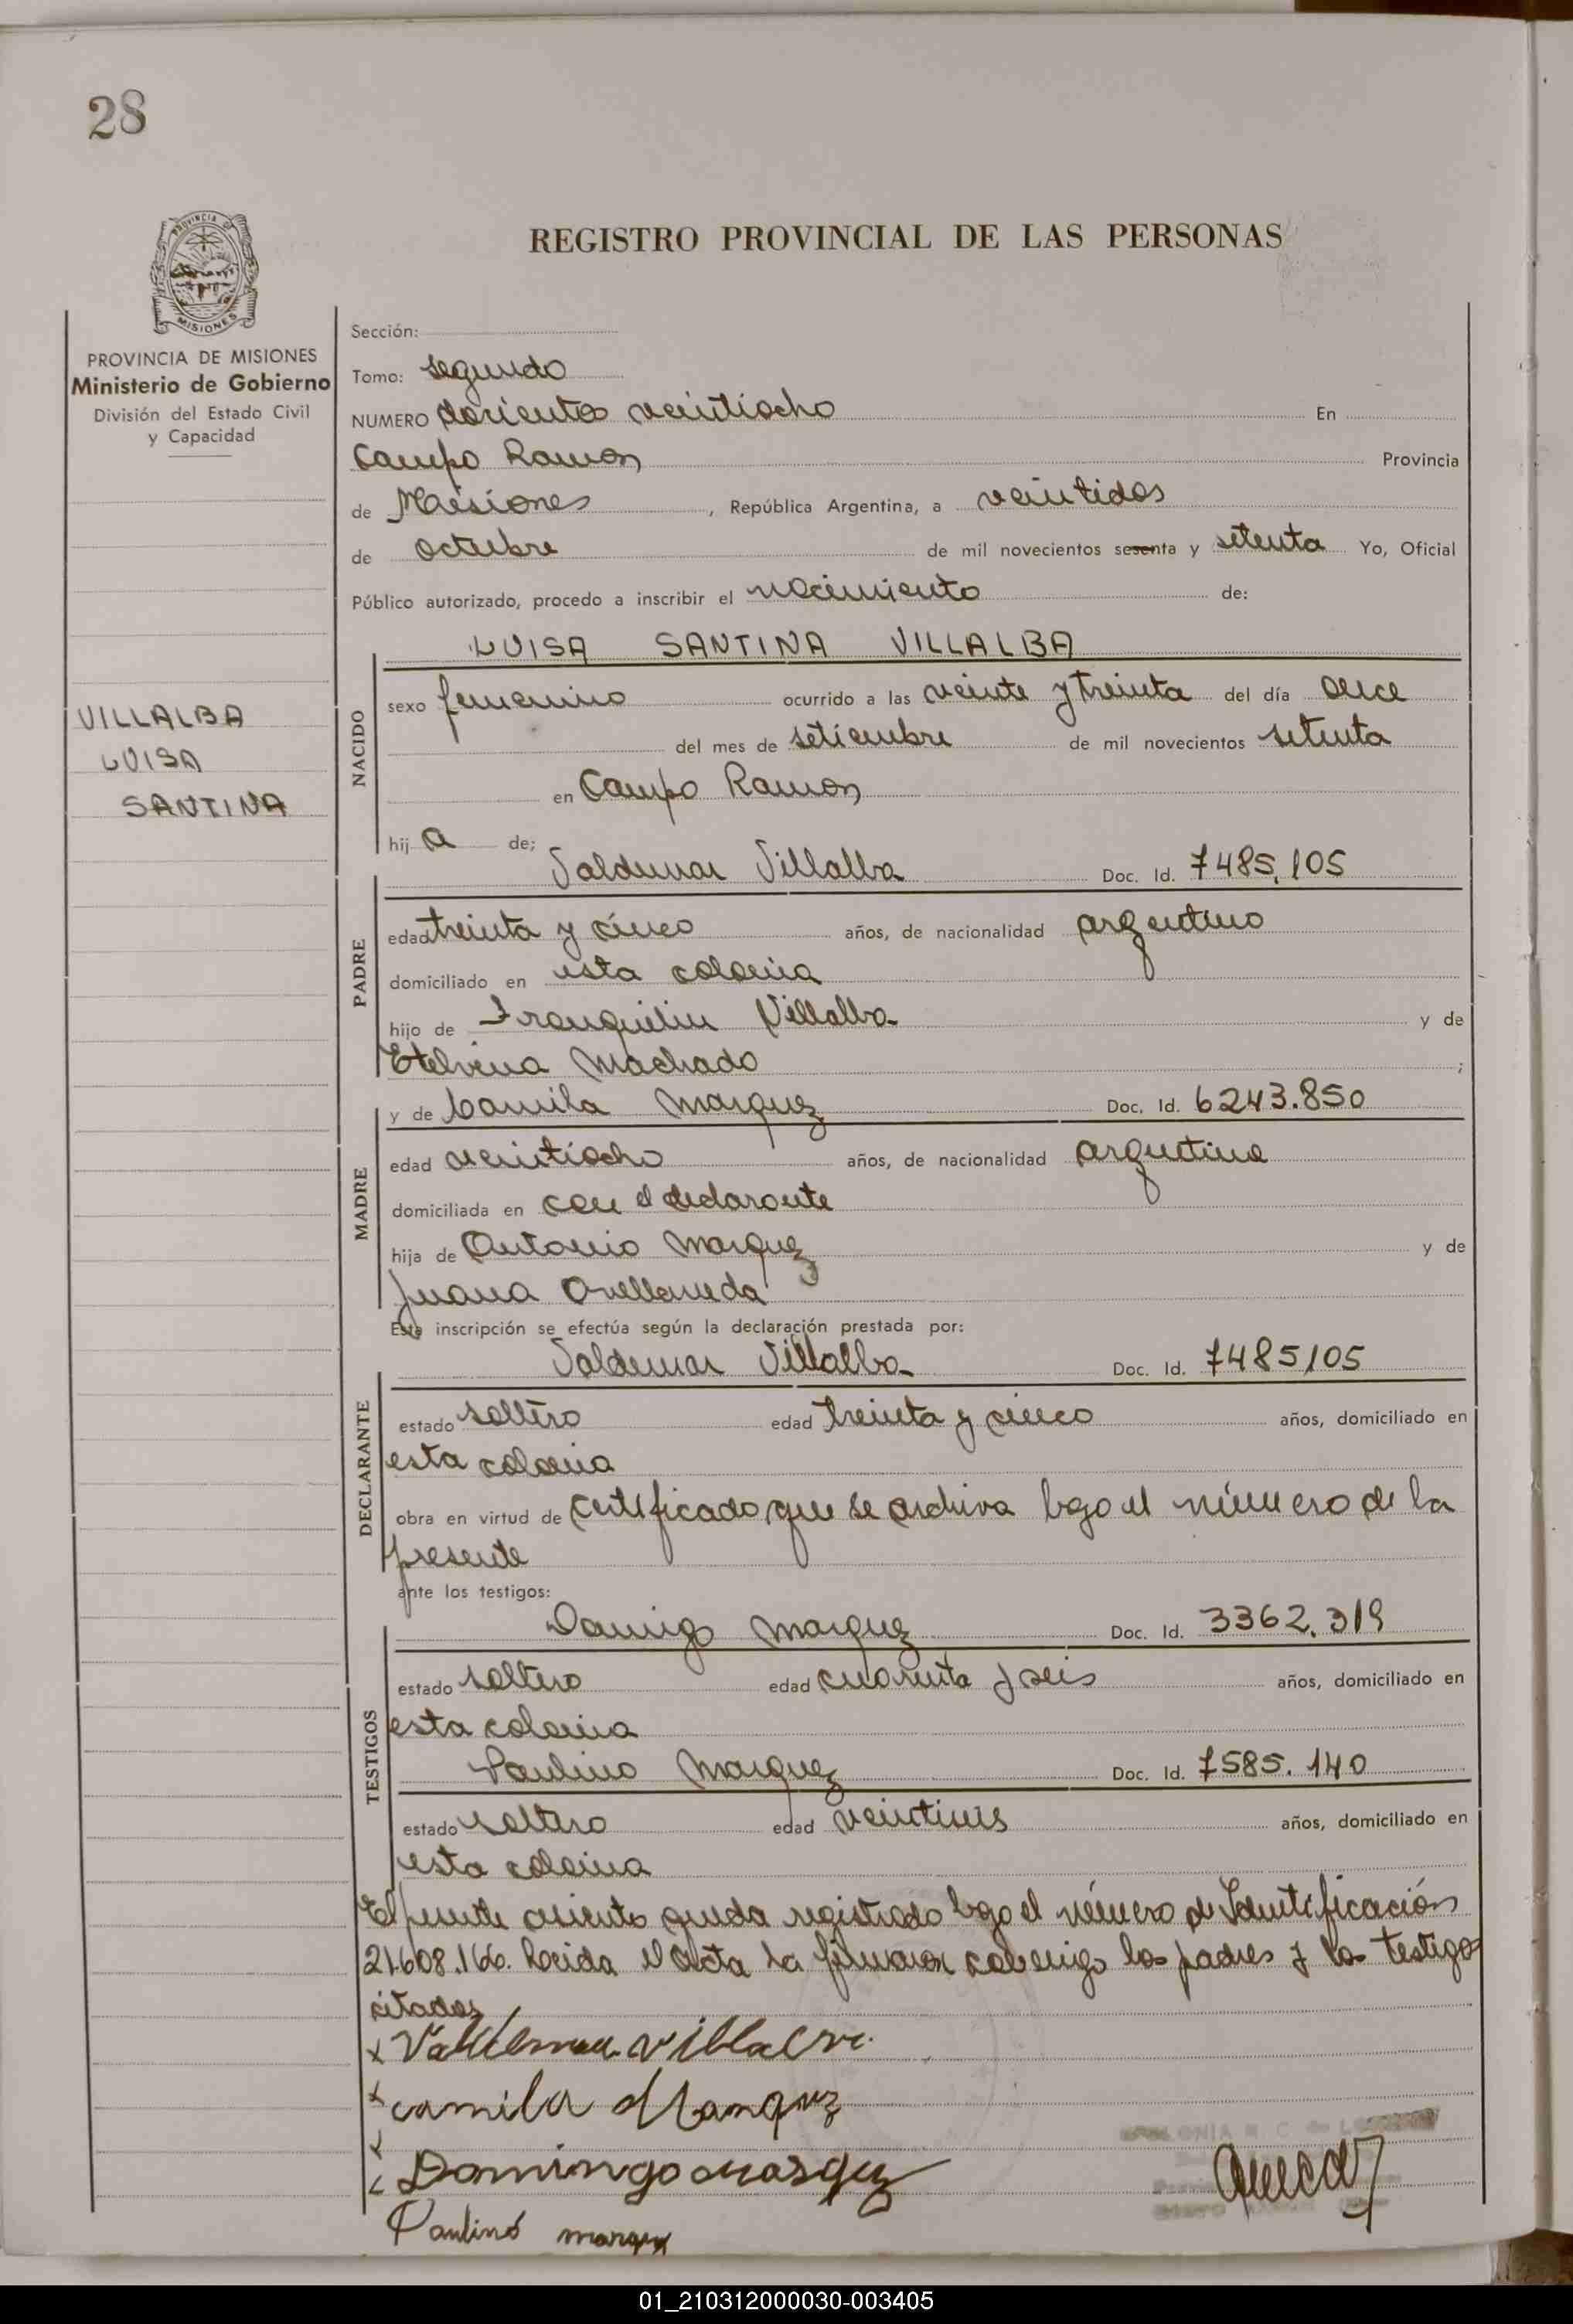 28
PROVINCIA DE
MISIONES
REGISTRO PROVINCIAL DE LAS PERSONAS
PROVINCIA DE MISIONES
Ministerio de Gobierno
División del Estado Civil
y Capacidad
VILLALBA
LUISA
SANTINA
Sección:
Tomo: segundo
NUMERO doscientos veintiocho En
Campo Ramon Provincia
de Misiones, República Argentina, a veintidos
de octubre de mil novecientos sesenta y setenta Yo, Oficial
Público autorizado, procedo a inscribir el nacimiento de:
LUISA SANTINA VILLALBA
NACIDO
sexo femenino ocurrido a las veinte y treinta del día once
del mes de setiembre de mil novecientos setenta
en Campo Ramon
hij a de;
Valdemar Villalba Doc. Id. 7485.105
PADRE
edad treinta y cinco años, de nacionalidad argentino
domiciliado en esta colonia
hijo de Franquilin Villalba y de
Etelvina Machado ;
y de Camila Marquez Doc. Id. 6243.850
MADRE
edad veintiocho años, de nacionalidad argentina
domiciliada en con el declarante
hija de Antonio Marquez y de
Juana Avellaneda
Esta inscripción se efectúa según la declaración prestada por:
Valdemar Villalba Doc. Id. 7485105
DECLARANTE
estado soltero edad treinta y cinco años, domiciliado en
esta colonia
obra en virtud de certificado que se archiva bajo el número de la
presente
ante los testigos:
Domingo Marquez Doc. Id. 3362.319
TESTIGOS
estado soltero edad cuarenta y seis años, domiciliado en
esta colonia
Paulino Marquez Doc. Id. 7585.140
estado soltero edad años, domiciliado en
esta colonia
El presente asiento queda registrado bajo el número de Identificación
21608.166. Leida el acta la firmaron conmigo los padres y los testigos
citados
x Valdemar Villalba
x camila Marquez
x Domingo Marquez
Paulino marquez
01_210312000030-003405